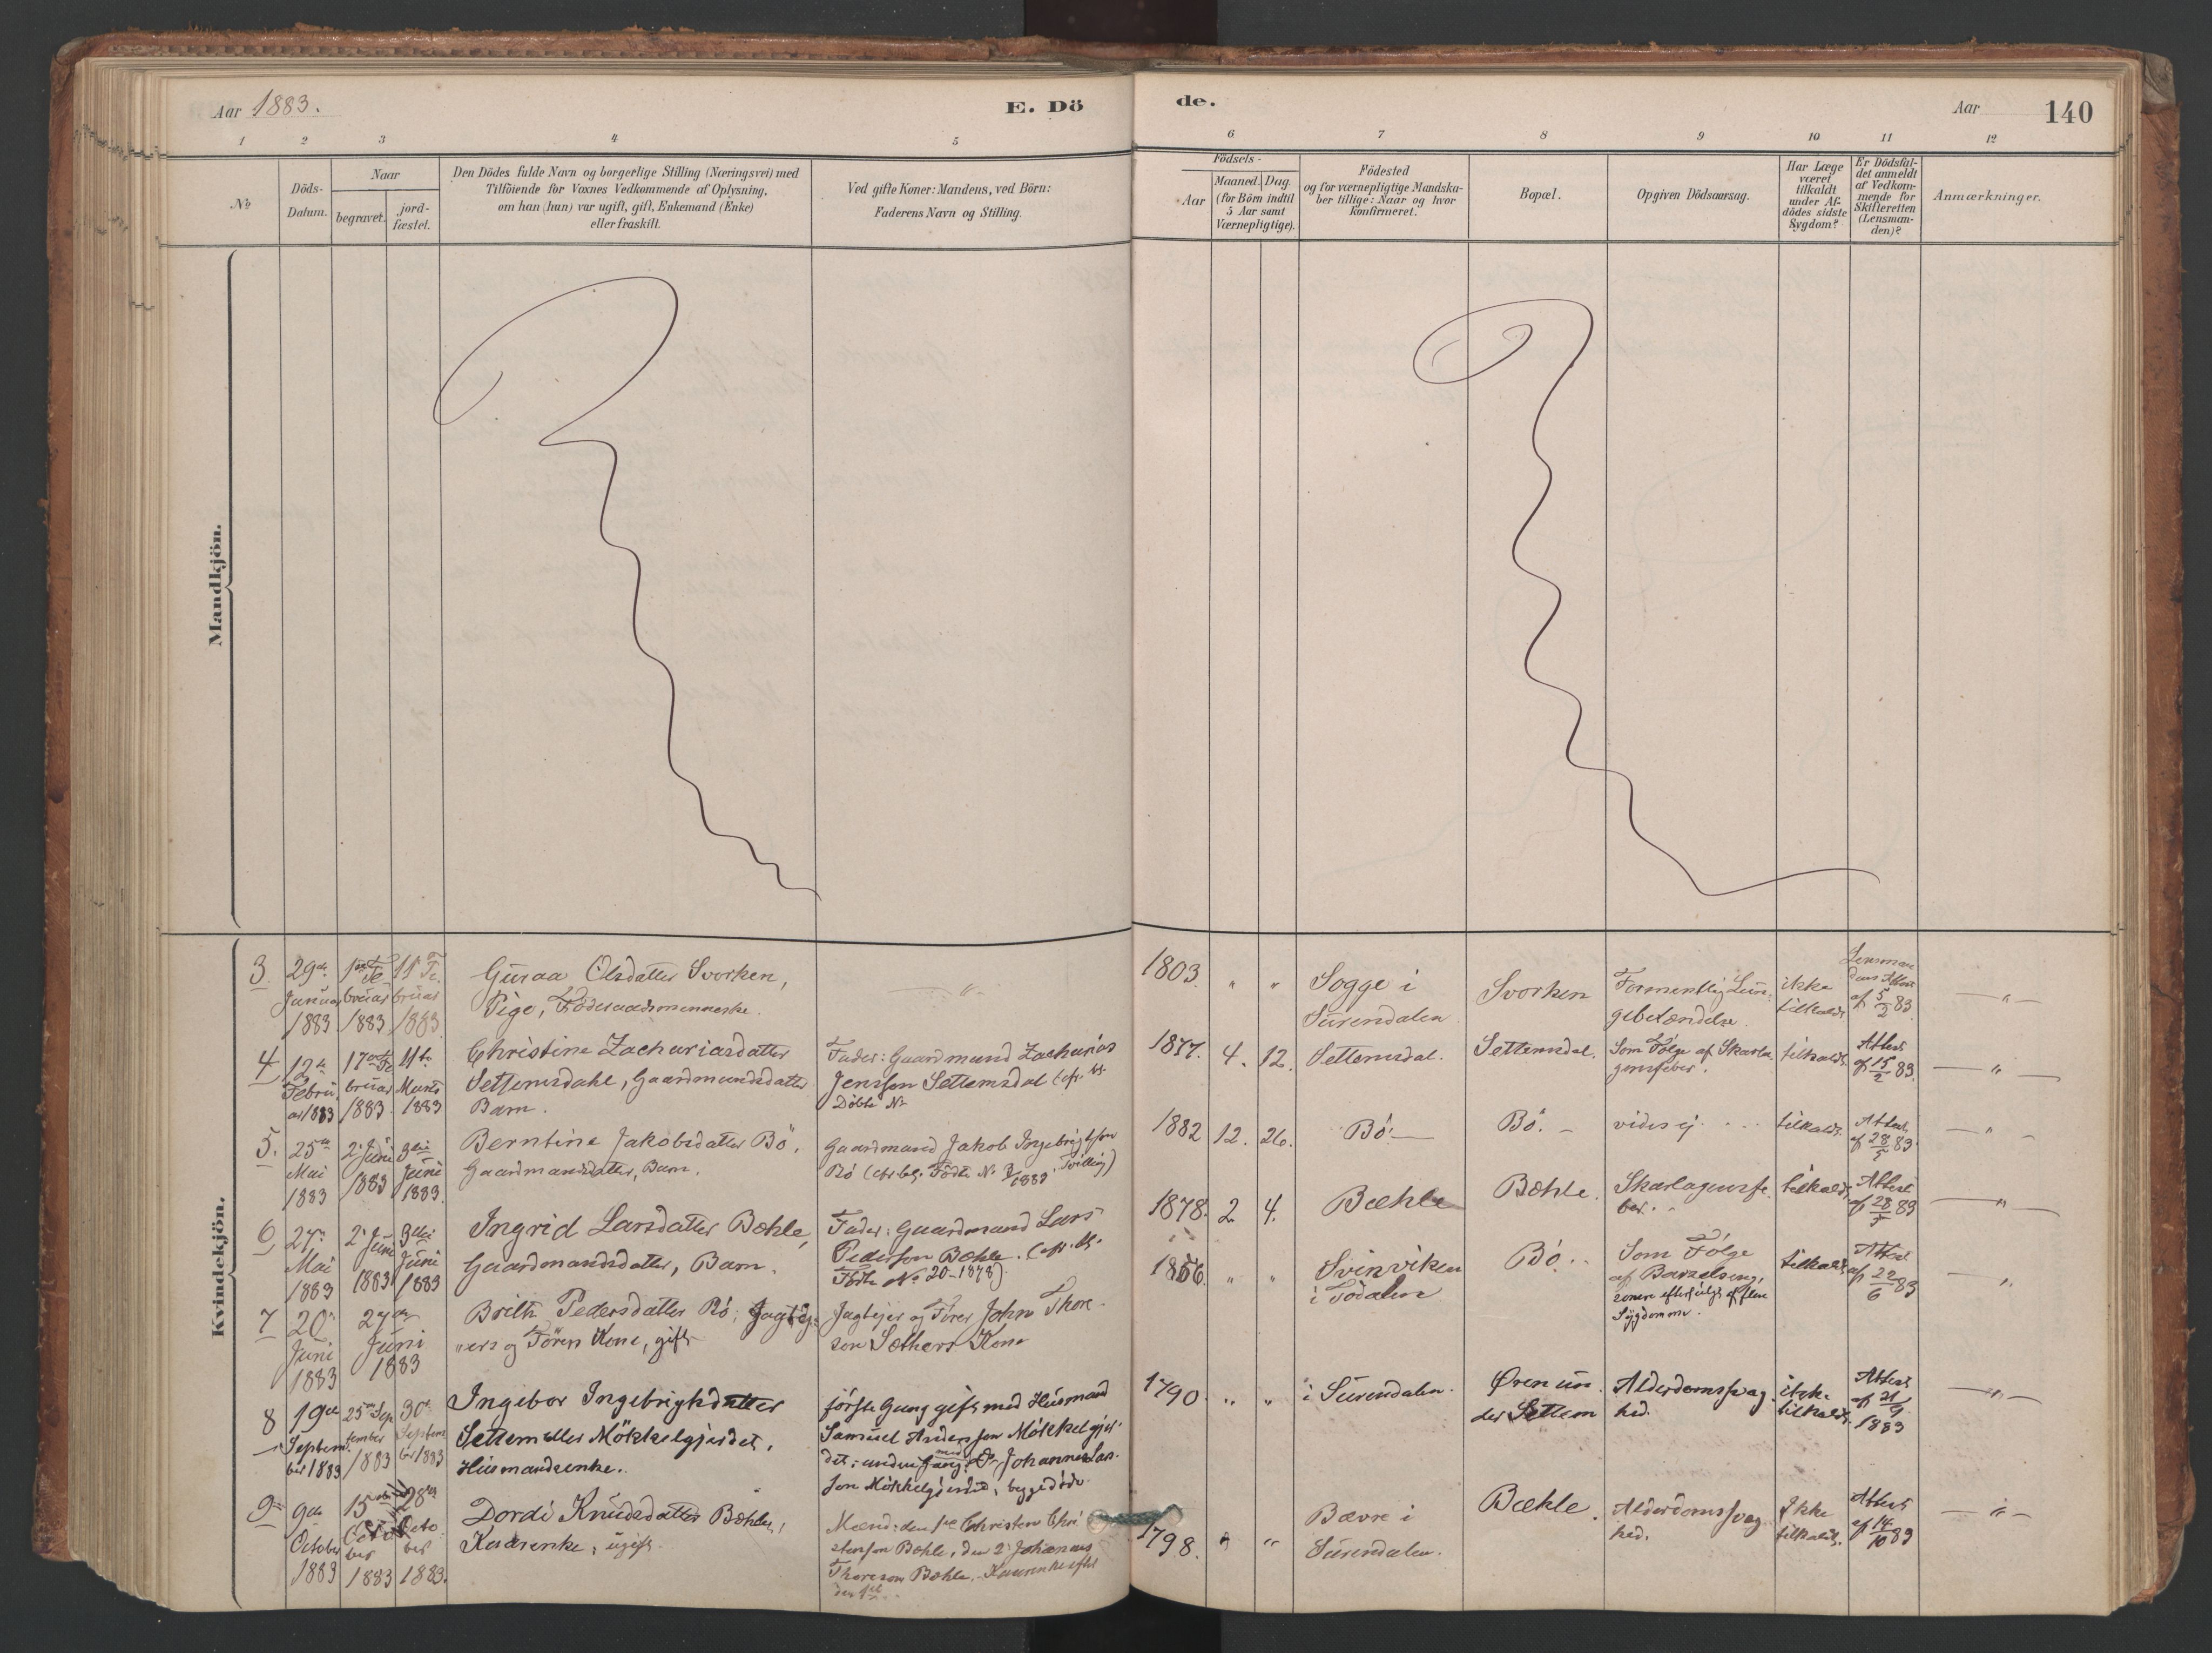 Aar 1883.
E. Dö
de.
Aar
140
1 2 3 4 5 6 7 8 9 10 11 12
No
Döds-
Datum.
Naar
begravet.
jord-
fæstet.
Den Dödes fulde Navn og borgerlige Stilling (Næringsvei) med
Tilföiende for Voxnes Vedkommende af Oplysning,
om han (hun) var ugift, gift, Enkemand (Enke)
eller fraskilt.
Ved gifte Koner: Mandens, ved Börn:
Faderens Navn og Stilling.
Födsels-
Aar
Maaned.
Dag.
(for Börn indtil
5 Aar samt
Værnepligtige).
Födested
og for værnepligtige Mandska-
ber tillige: Naar og hvor
konfirmeret.
Bopæl.
Opgiven Dödsaarsag.
Har Læge
været
tilkaldt
under Af-
dödes sidste
Sygdom?
Er Dödsfal-
det anmeldt
af Vedkom-
mende for
Skifteretten
(Lensman-
den)?
Anmærkninger.
Mandkjön.
Kvindekjön.
3.
29de
Januar
1883
1ste Fe
bruar
1883
11te Fe
bruar
1883
Guraa Olsdatter Svorken,
Pige, Föderaadsmenneske.
— " —
1803.
"
"
Sogge i
Surendalen
Svorken
Formentlig Lun-
gebetændelse.
ikke
tilkaldt
Lensman
dens Attest
af 5/2 83.
— " —
4
12te
Febru
ar 1883
17de Fe
bruar
1883
11te
Marts
1883
Christine Zachariasdatter
Settemsdahl, Gaardmandsdatter
Barn.
Fader: Gaardmand Zacharias
Jenssen Settemsdal (cfr. bl.
Döbte No
1877.
4.
12.
Settemsdal.
Settemsdal.
Som Fölge af Skarla
gensfeber.
tilkaldt
Attest
af 15/2 83.
— " —
5.
25de
Mai
1883
2. Juni
1883
3die
Juni
1883.
Berntine Jakobsdatter Bö,
Gaardmandsdatter, Barn.
Gaardmand Jakob Ingebrigtsen
Bö (cfr. bl. Födte No 3/1883, Tvilling)
1882
12.
26.
Bö. —
Bö. —
vides ej
tilkaldt.
Attest
af 28/5 83
— " —
6
27de
Mai
1883
2. Juni
1883
3die
Juni
1883
Ingrid Larsdatter Bæhle,
Gaardmandsdatter, Barn.
Fader: Gaardmand Lars
Pedersen Bæhle. (cfr. bl.
Födte No 20 - 1878)
1878.
2.
4.
Bæhle
Bæhle.
Skarlagensfe
ber.
tilkaldt
Attest
af 28/5 83
— " —
7
20de
Juni
1883
27de
Juni
1883
Brith Pedersdatter Bö, Jagtej-
ers og Förers Kone, gift
Jagtejer og Förer John Thore-
sen Sæthers Kone
1856.
"
"
Svinviken
i Todalen
Bö.
Som Fölge
af Barselseng,
senere efterfulgt af flere
Sygdomme.
tilkaldt
Attest
af 22/6 83
"
8
19de
Septem
ber 1883
25de Sep
tember
1883
30te
Septem
ber 1883
Ingebor Ingebrigtsdatter
Settem eller Mökkelgjerdet,
Husmandsenke.
förste Gang gift med Husmand
Samuel Andersen Mökkelgjer
det; anden Gang med Johannes Lar.
sen Mökkelgjerdet, begge döde.
1790.
"
"
i Surendalen.
Øren un
der Settem
Alderdomssvag
hed.
ikke
tilkaldt.
Attest
af 21/9
1883
— " —
9
9de
October
1883
15de
Octo
ber
1883
28de
Octo
ber
1883.
Dordi Knudsdatter Bæhle,
Kaarenke, ugift
Mænd: den 1ste Christen Chri
stensen Bæhle, den 2. Johannes
Thoresen Bæhle. - Kaarenke efter
den 1ste.
1798.
"
"
Bævre i
Surendalen.
Bæhle.
Alderdomssvag
hed.
Ikke
tilkaldt.
Attest
af 14/10 83
— " —